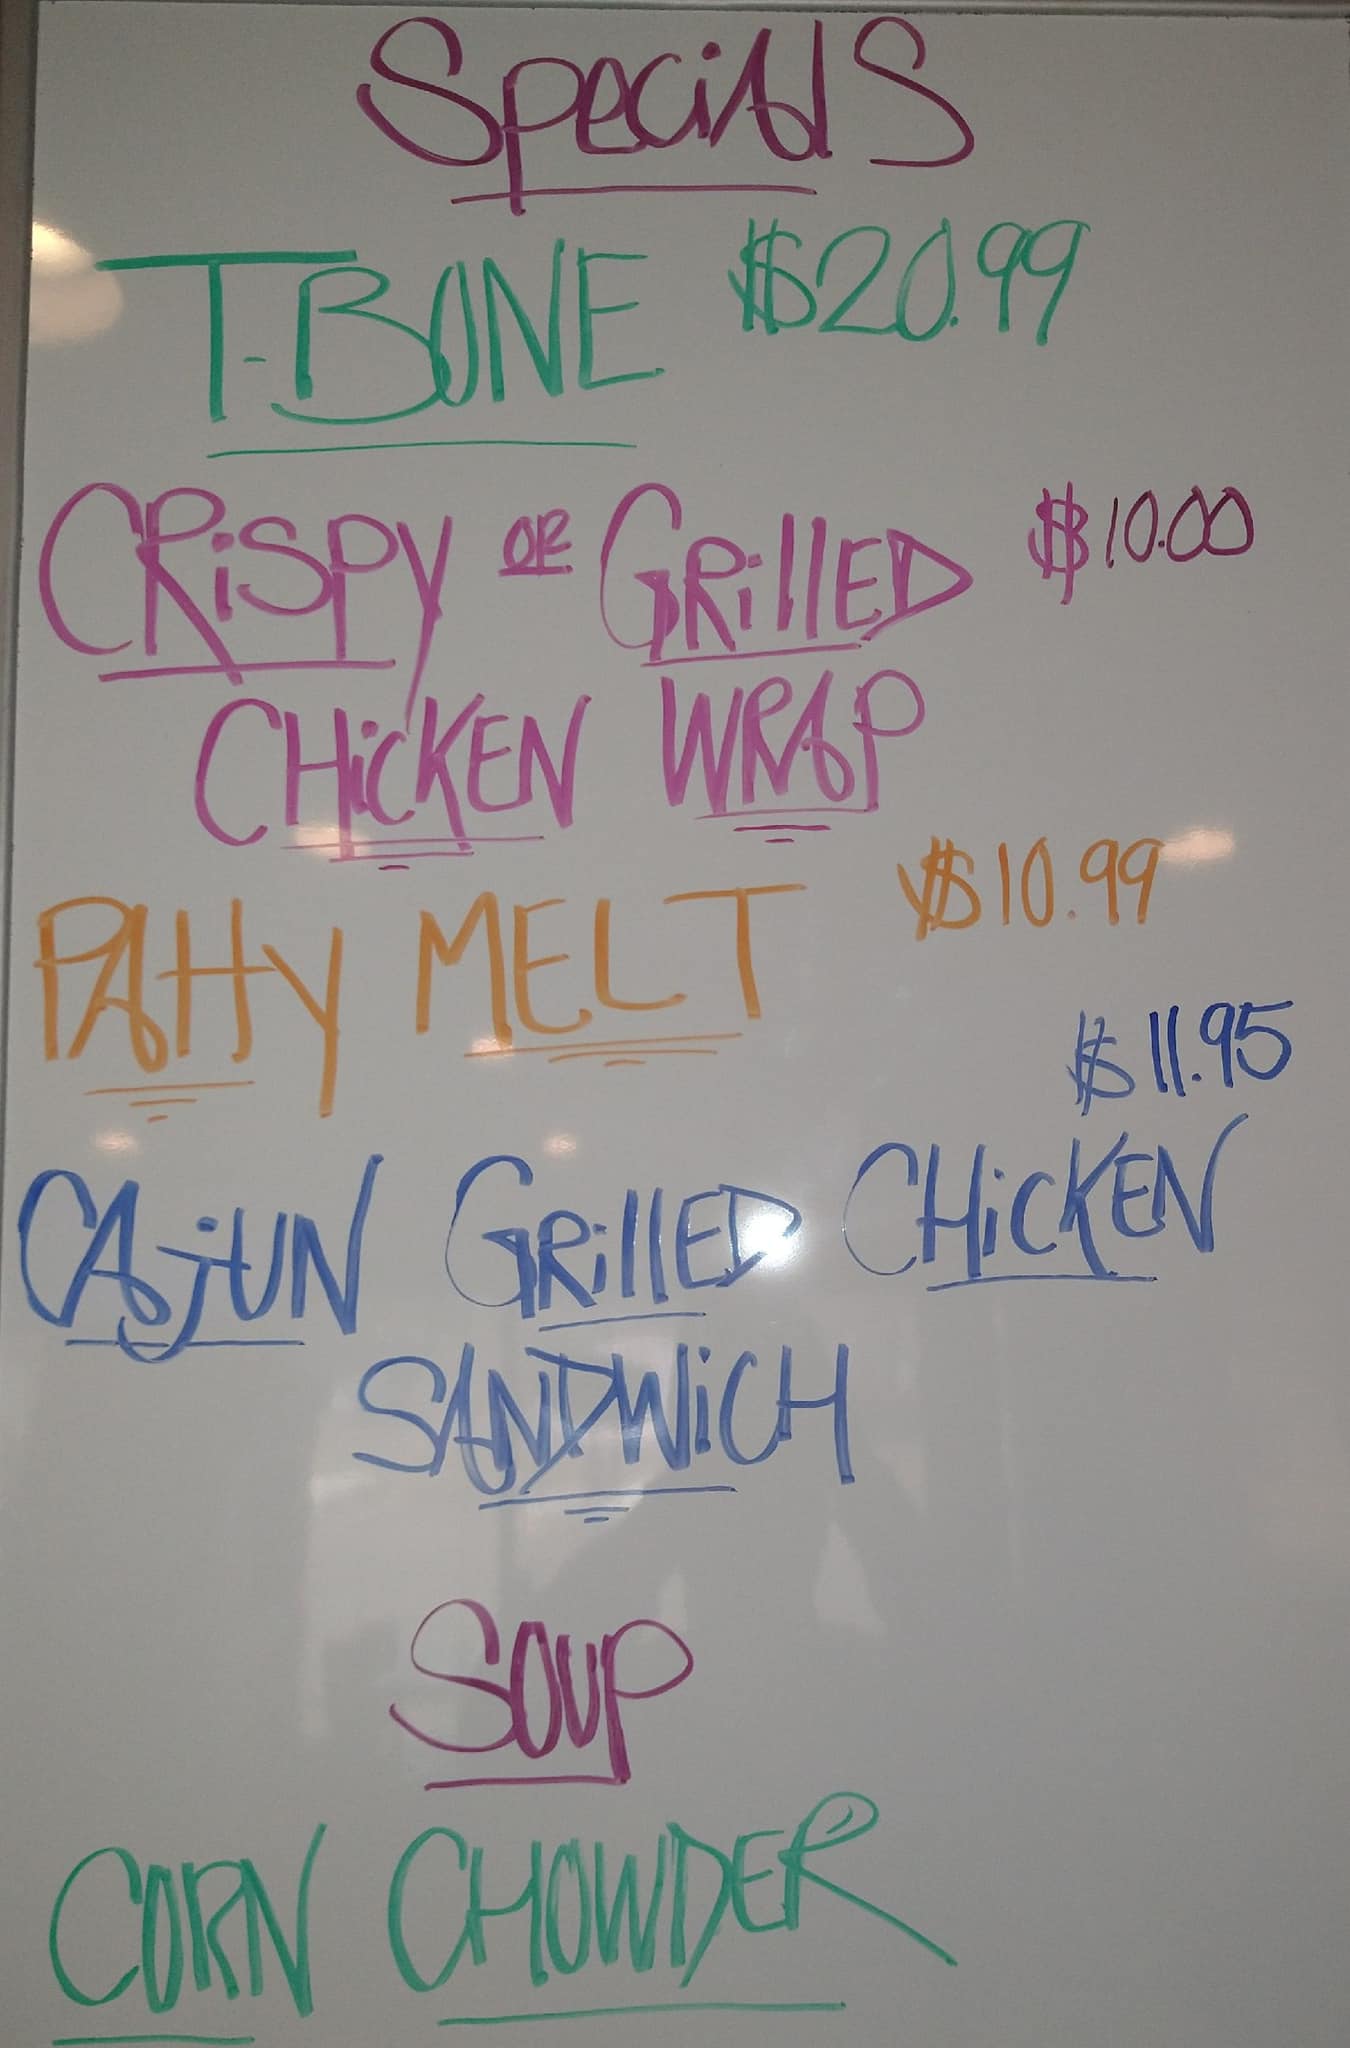 Specials
T-BONE $20.99
CRiSPY OR GRillED $10.00
CHiCKEN WRAP
PAttY MELT $10.99
$11.95
CAjUN GRillED CHiCKEN
SANDWiCH
SOUP
CORN CHOWDER